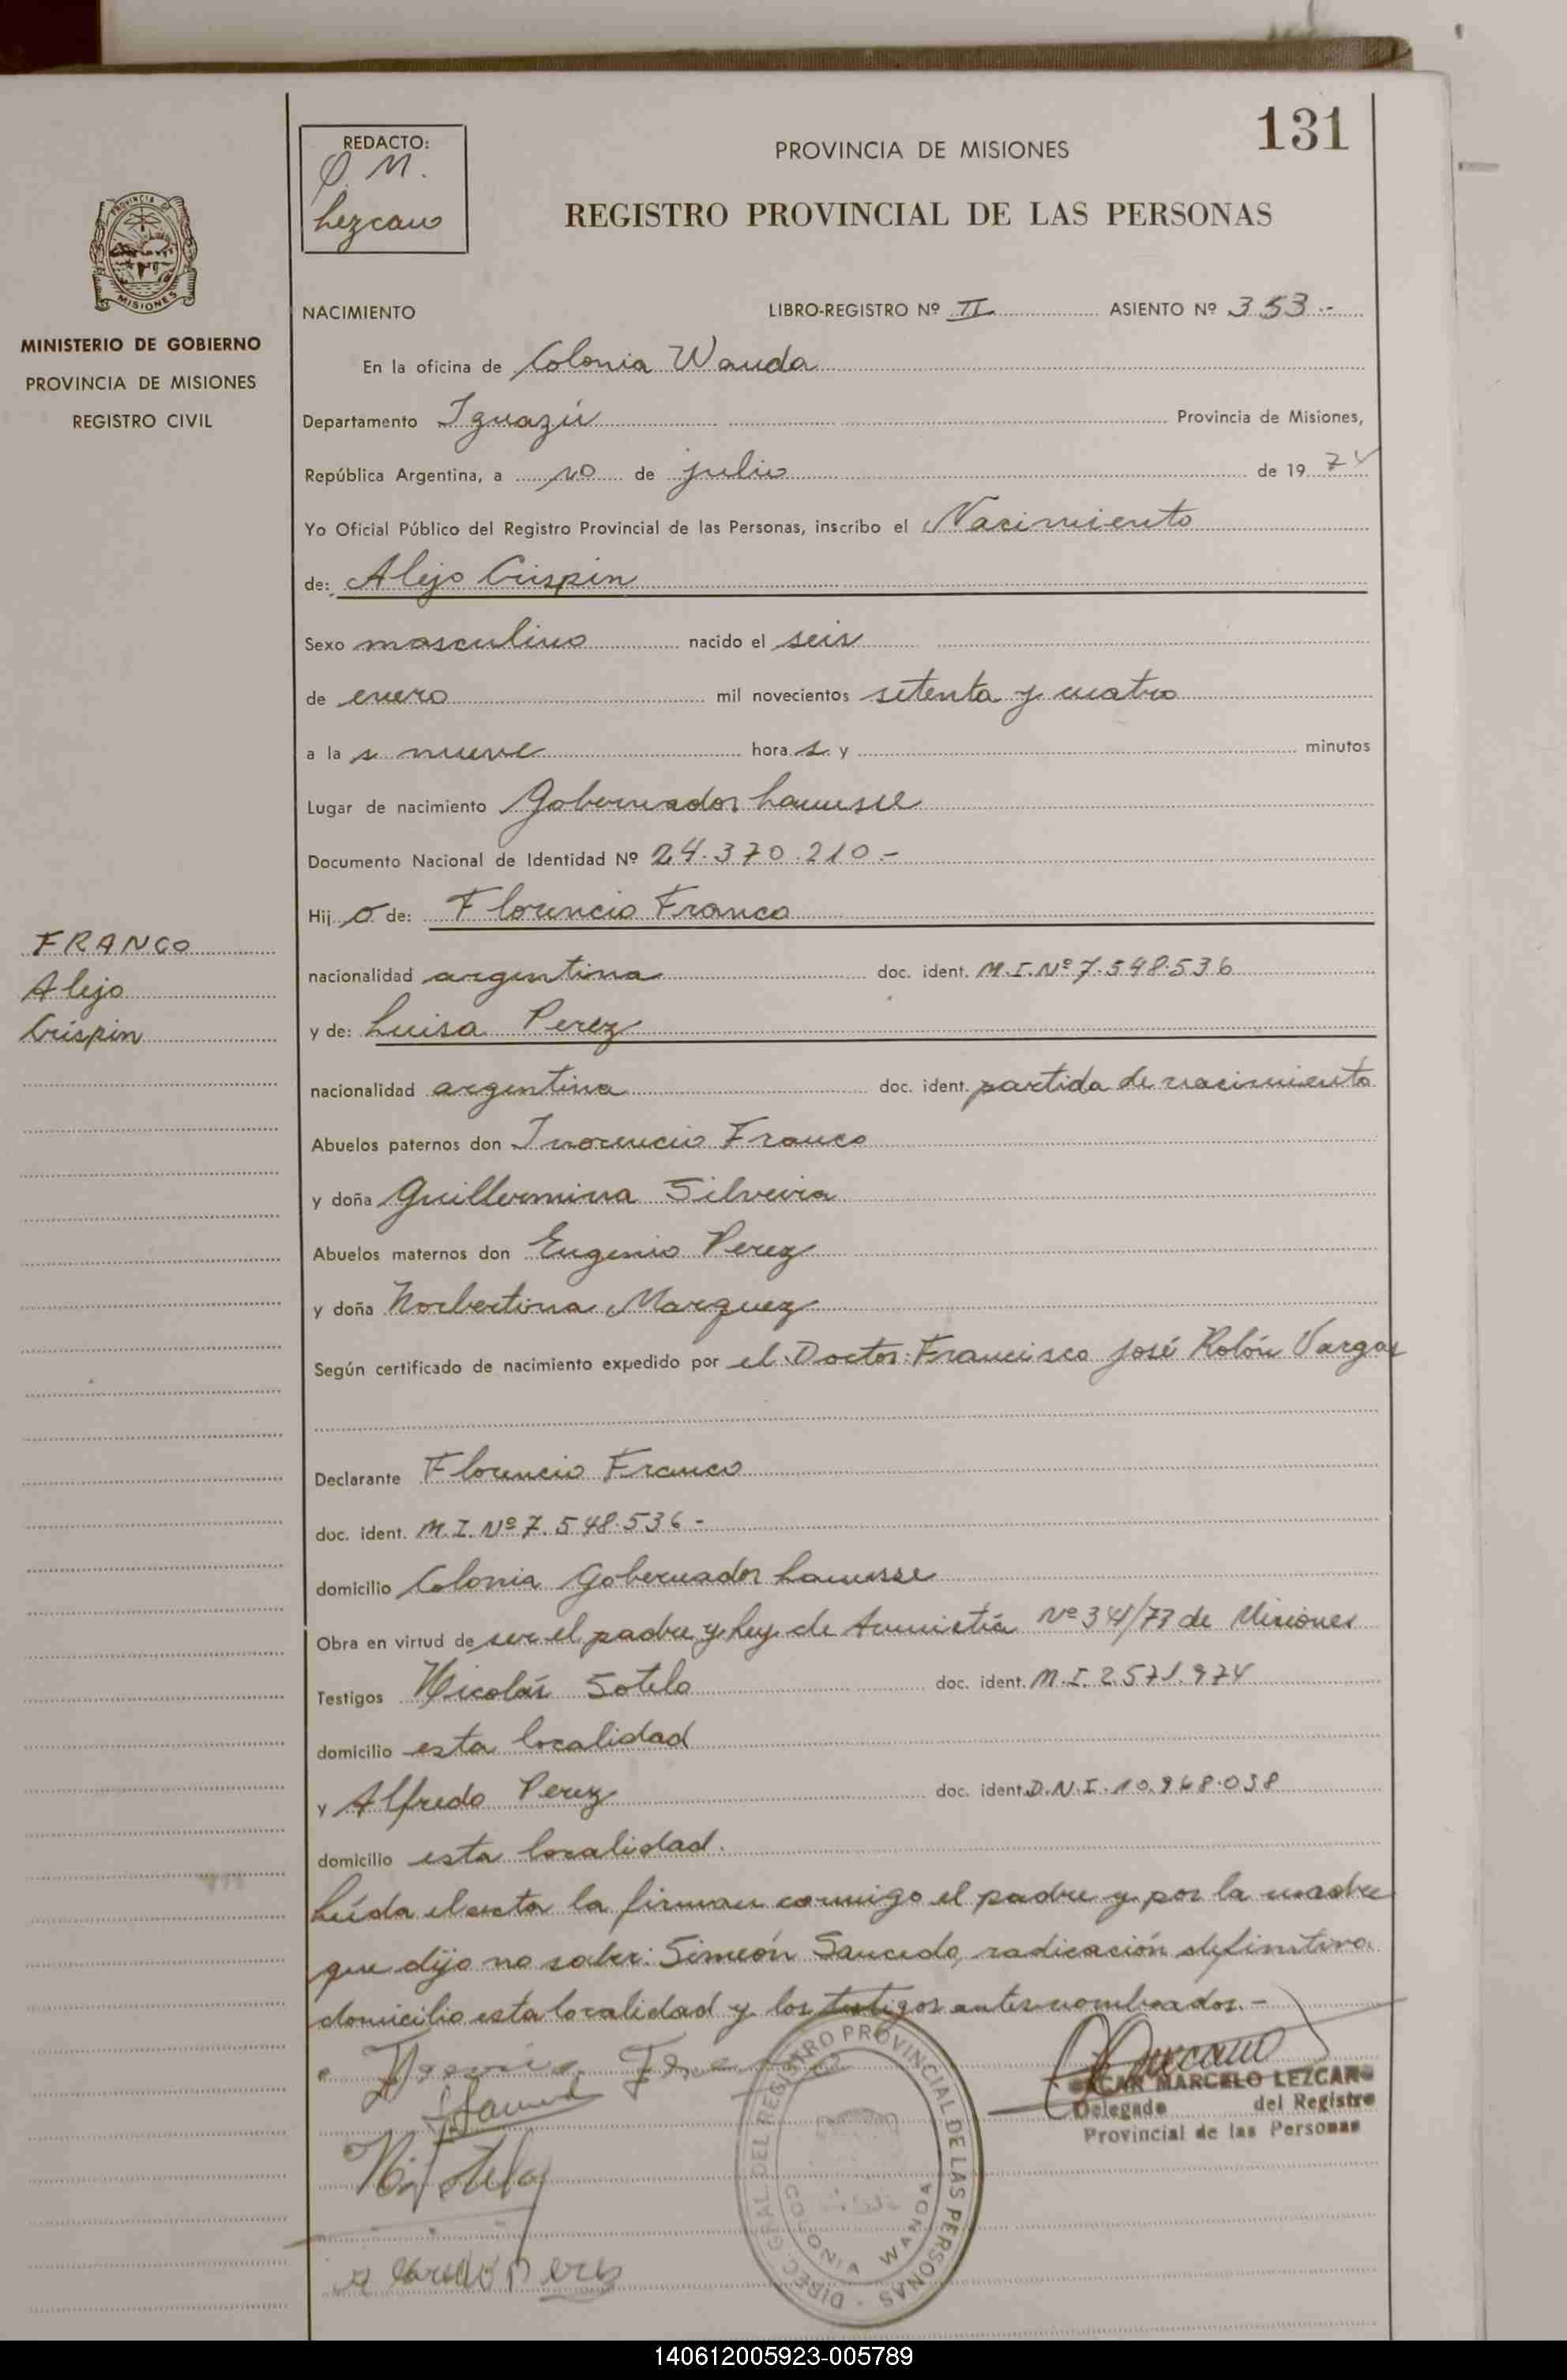 131
REDACTO:
O. M.
Lezcano
PROVINCIA DE MISIONES
REGISTRO PROVINCIAL DE LAS PERSONAS
PROVINCIA DE
MISIONES
MINISTERIO DE GOBIERNO
PROVINCIA DE MISIONES
REGISTRO CIVIL
NACIMIENTO LIBRO-REGISTRO Nº II ASIENTO Nº 353.-
En la oficina de Colonia Wanda
Departamento Iguazú Provincia de Misiones,
República Argentina, a 10 de julio de 19 74
Yo Oficial Público del Registro Provincial de las Personas, inscribo el Nacimiento
de: Alejo Crispin
Sexo masculino nacido el seis
de enero mil novecientos setenta y cuatro
a la s nueve hora s y minutos
Lugar de nacimiento Gobernador Lanusse
Documento Nacional de Identidad Nº 24.370.210.-
Hij o de: Florencio Franco
FRANCO
Alejo
Crispin
nacionalidad argentina doc. ident. M.I.Nº 7.548.536
y de: Luisa Perez
nacionalidad argentina doc. ident. partida de nacimiento
Abuelos paternos don Inocencio Franco
y doña Guillermina Silveira
Abuelos maternos don Eugenio Perez
y doña Norbertina Marquez
Según certificado de nacimiento expedido por el Doctor: Francisco José Rolón Vargas
Declarante Florencio Franco
doc. ident. M.I. Nº 7.548.536-
domicilio Colonia Gobernador Lanusse
Obra en virtud de ser el padre y Ley de Amnistía Nº 341/73 de Misiones
Testigos Nicolás Sotelo doc. ident. M.I. 2.571.974
domicilio esta localidad
y Alfredo Perez doc. ident. D.N.I. 10.968.038
domicilio esta localidad.
Leída el acta la firman conmigo el padre y por la madre
que dijo no saber: Simeón Saucedo, radicación definitiva
domicilio esta localidad y los testigos antes nombrados.-
OSCAR MARCELO LEZCANO
Delegado del Registro
Provincial de las Personas
DIREC. GRAL DEL REGISTRO PROVINCIAL DE LAS PERSONAS
COLONIA WANDA
140612005923-005789